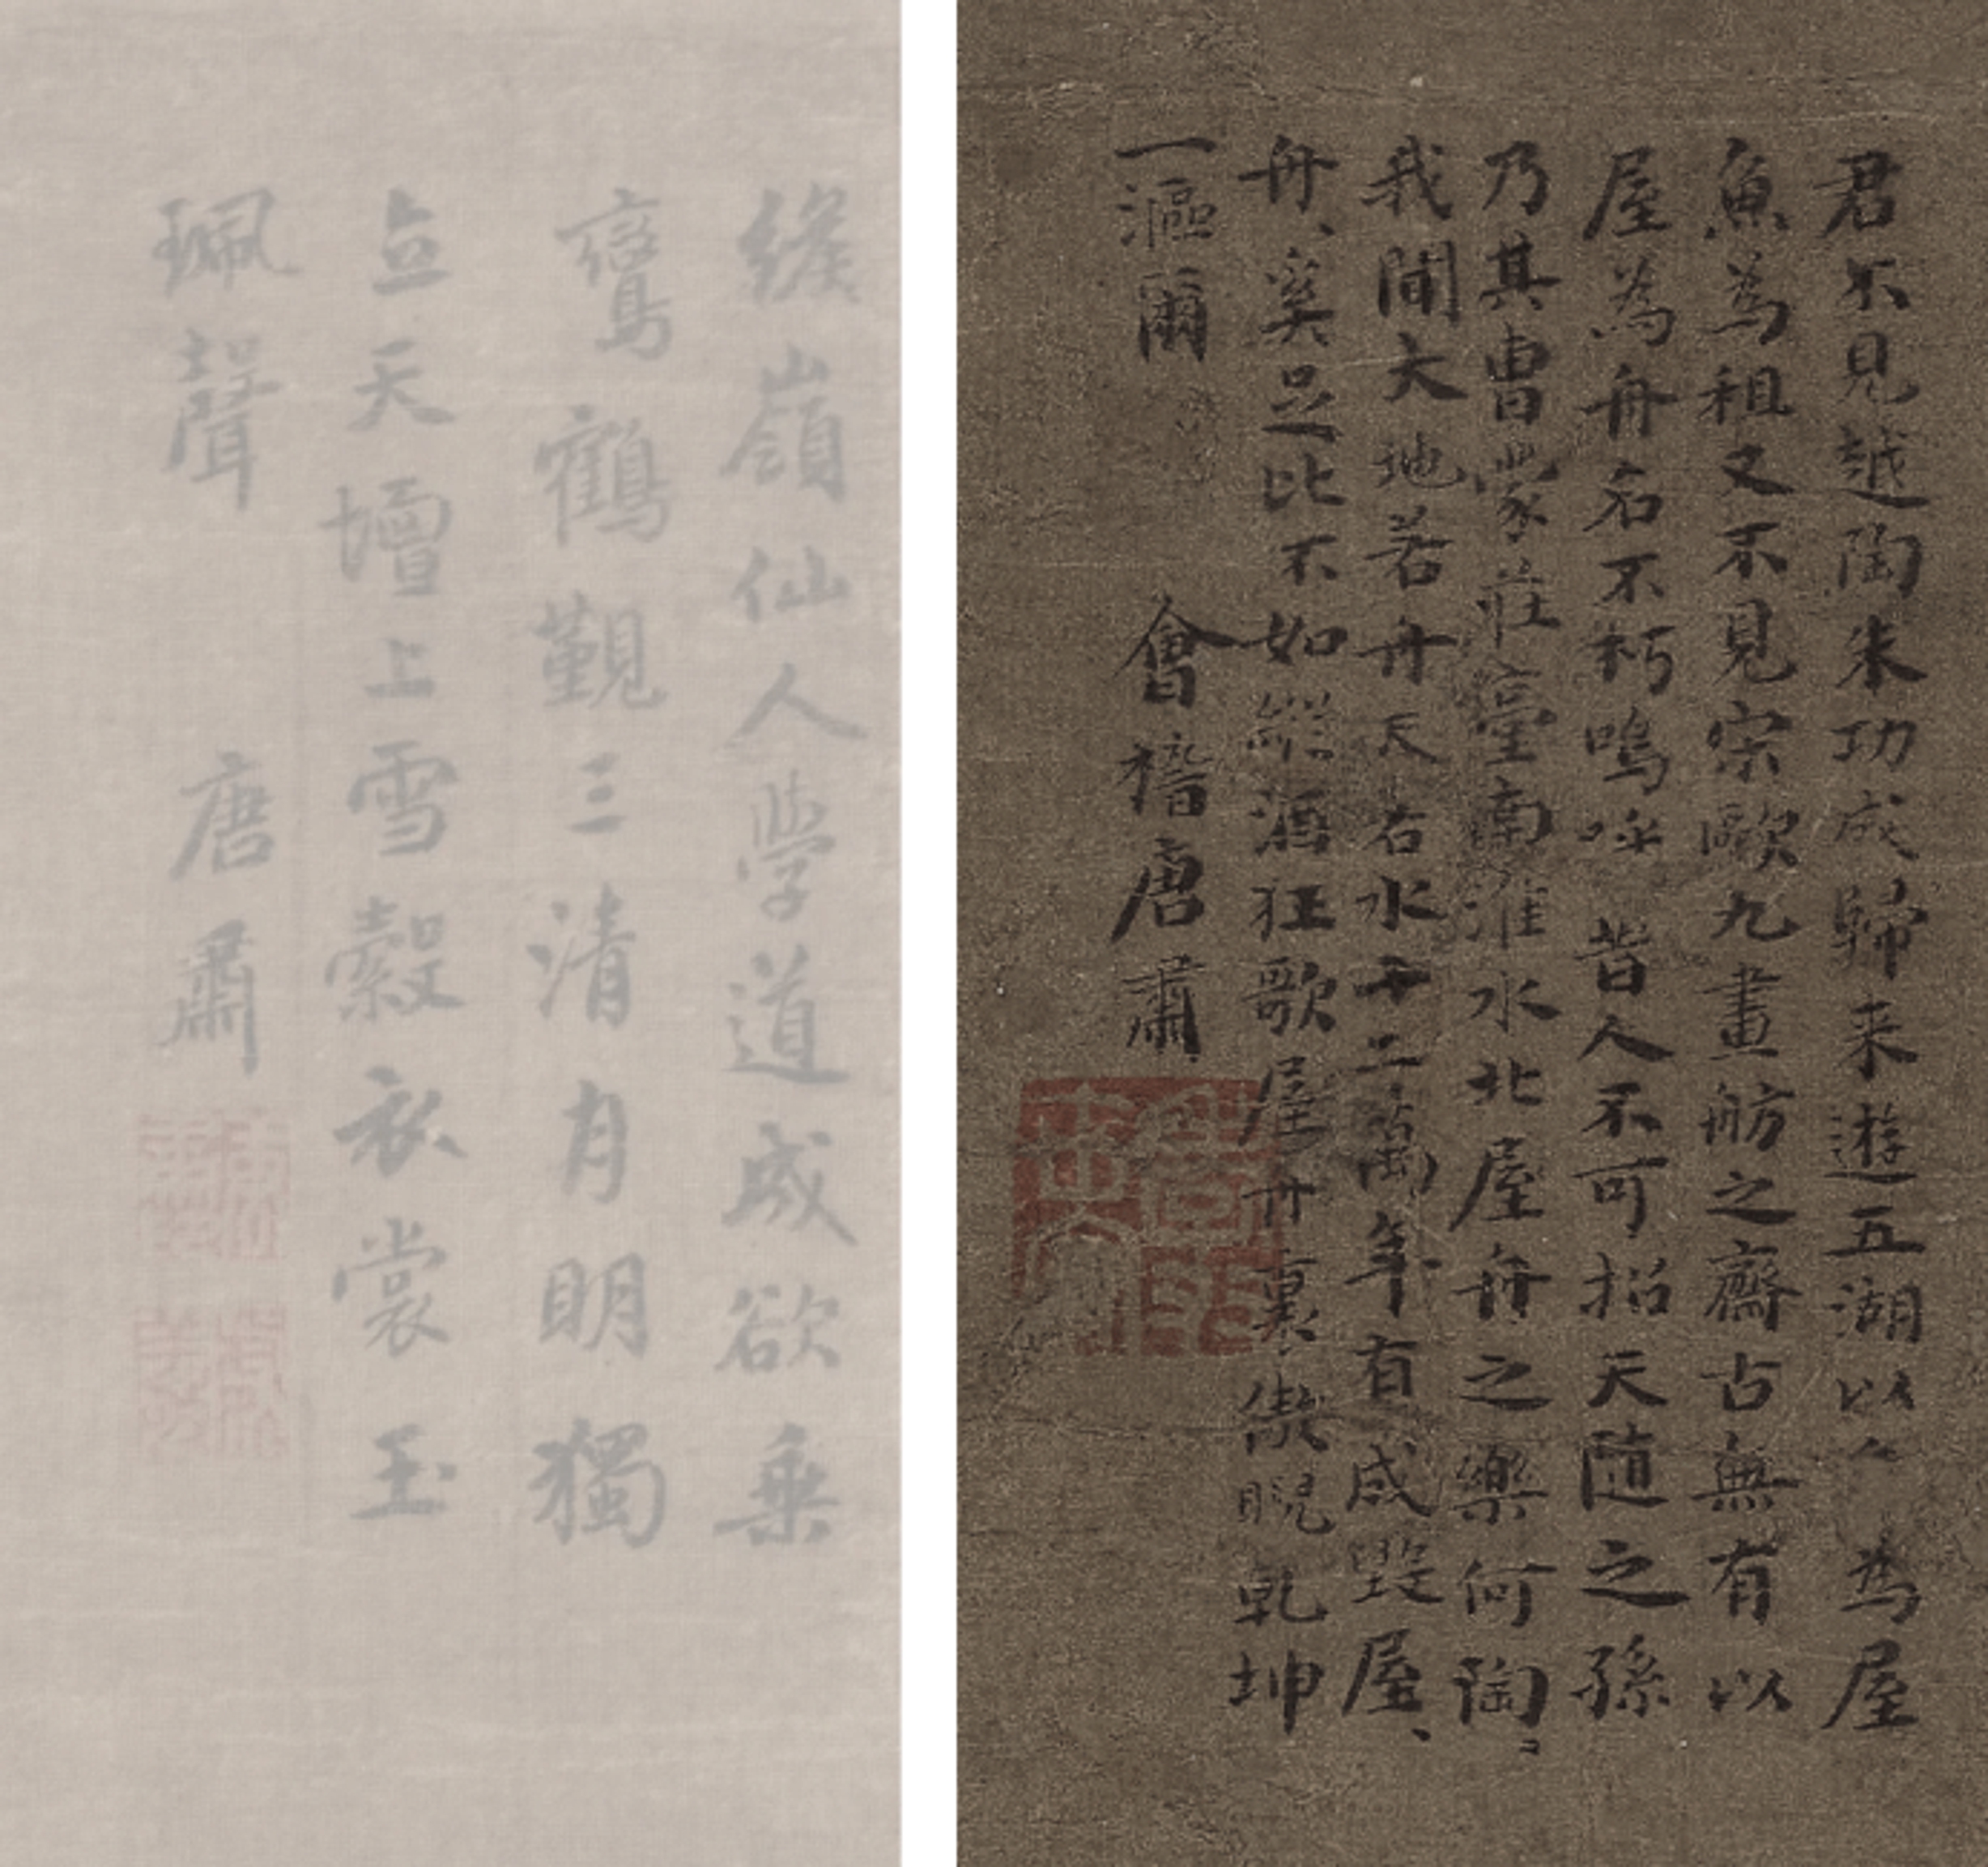 緱嶺仙人学道成欲乘
鸞鶴覲三清月明獨
立天壇上雪縠衣裳玉
珮聲　唐肅
君不見越陶朱功成歸来遊五湖以為屋
魚為祖又不見宋歐九畫舫之齋古無有以
屋為舟名不朽嗚呼昔人不可招天随之孫
乃其曹蒙莊臺南淮水北屋舟之樂何陶〻
我聞大地若舟天若水十二萬年有成毀屋、
舟、奚足比不如縱酒狂歌屋舟裏傲睨乾坤
一漚爾　會稽唐肅